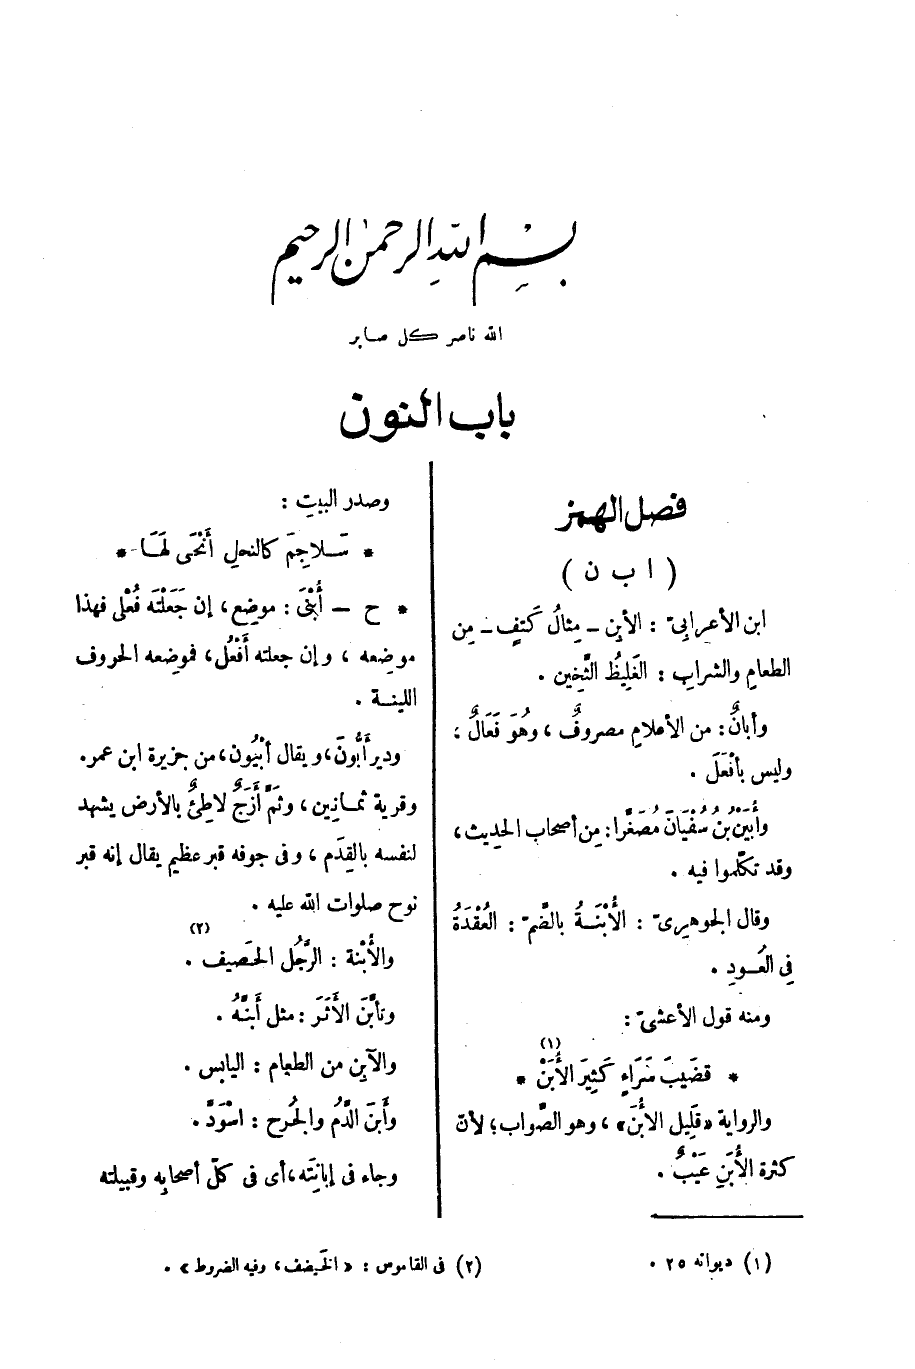 بسم الله الرحمن الرحيم
الله ناصر كل صابر
باب النون
فصل الهمز
( ا ب ن )
ابن الأعرابىّ : الأبِن - مِثالُ كَتِفٍ - مِن
الطعامِ والشرابِ : الغَلِيظُ الثَّخِين .
وأبانٌ : من الأعلامِ مصروفٌ ، وهُوَ فَعَالٌ ؛
وليس بأَفْعَلَ .
وأُبَيْنُ بْنُ سُفْيَانَ مُصَغَّرا : مِن أصحاب الحديث ،
وقد تكلّموا فيه .
وقال الجوهرىّ : الأُبْنَةُ بالضّمّ : العُقْدَةُ
فِى العُودِ .
ومنه قول الأعشىّ :
* قضَيبَ سَرَاءٍ كَثِيرَ الأُبَنْ (١) *
والرواية «قَلِيل الأُبَن» ، وهو الصَّواب ؛ لأن
كثرة الأُبَنِ عَيْبٌ .
وصدر البيتِ :
* سَلاجِمَ كالنحلِ أَنْحَى لَهَا *
* ح – أُبْنَى : موضِع ، إن جَعَلْتَه فُعْلى فهذا
موضِعه ، وإن جعلته أَفْعُل ، فموضعه الحروف
اللينة .
ودير أَبُّونَ ، ويقال أَبْيُون ، من جزيرة ابن عمر .
وقرية ثمانين ، وثَمَّ أَزَجٌ لاطِئٌ بالأرض يشهد
لنفسه بالقِدَم ، وفى جوفه قبر عظيم يقال إنه قبر
نوح صلوات الله عليه .
والأُبْنة : الرَّجُل الحَصيف (٢) .
وتأبَّنَ الأَثَرَ : مثل أَبَّنَهُ .
والآبِن من الطعام : اليابس .
وأَبَنَ الدَّمُ والجُرح : اسْوَدَّ .
وجاء فى إبانَتِه ، أى فى كلّ أصحابِه وقبيلته
(١) ديوانه ٢٥ .
(٢) فى القاموس : « الخَيضف ، وفيه الضروط » .